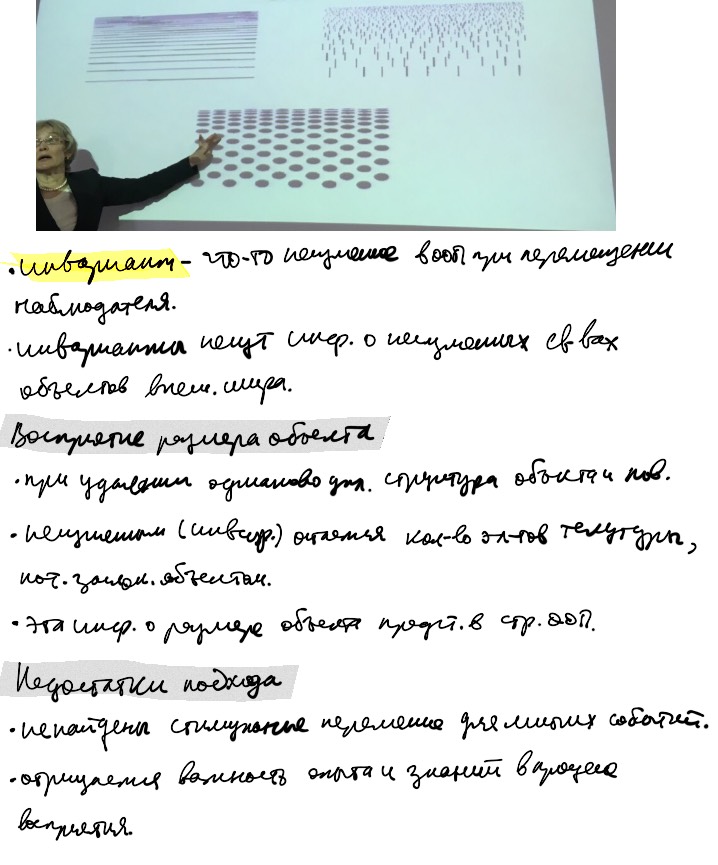 · инвариант – что-то неизменное в ооп при перемещении
наблюдателя.
· инварианты несут инф. о неизменных св-вах
объектов внеш. мира.
Восприятие размера объекта
· при удалении одинаково доп. структура объекта и пов.
· неизменным (инвар.) остается кол-во эл-тов текстуры,
кот. заслон. объектом.
· эта инф. о размере объекта предст. в стр. ооп.
Недостатки подхода
· не найдены стимульные переменные для многих событий.
· отрицается важность опыта и знаний в процессе
восприятия.